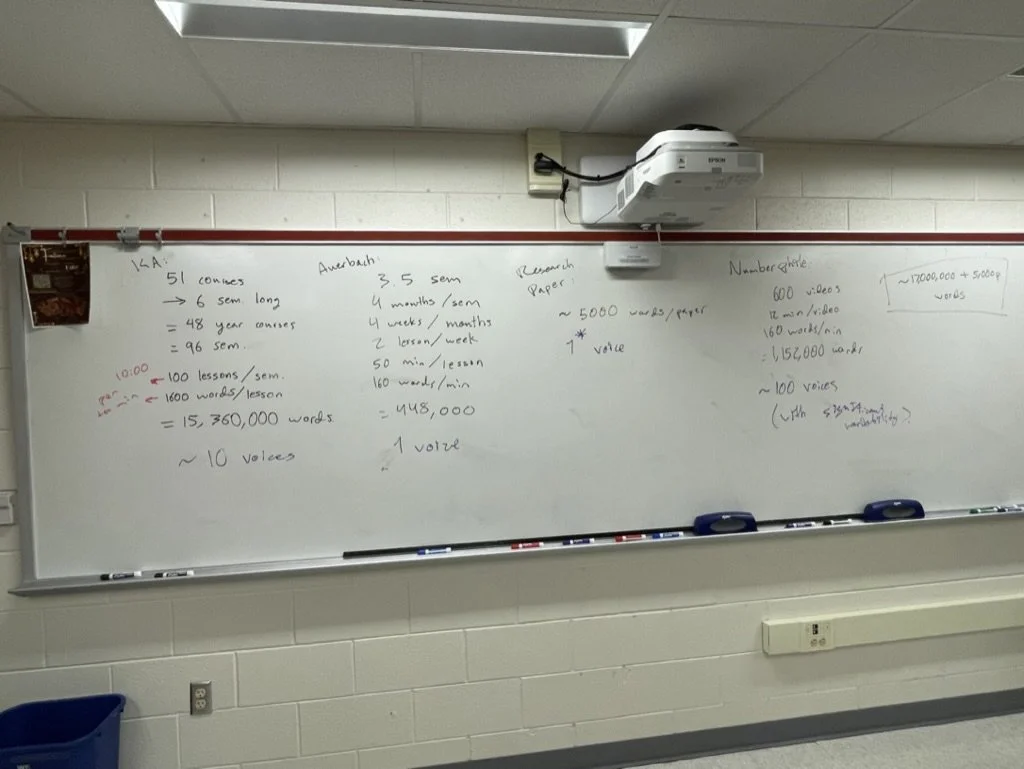 KA:
51 courses
→ 6 sem. long
= 48 year courses
= 96 sem.
10:00
← 100 lessons/sem.
per min ← 1600 words/lesson
= 15,360,000 words
~ 10 voices
Auerbach:
3.5 sem
4 months/sem
4 weeks/months
2 lesson/week
50 min/lesson
160 words/min
= 448,000
1 voice
Research
Paper:
~ 5000 words/paper
1* voice
Numberphile:
600 videos
12 min/video
160 words/min
= 1,152,000 words
~ 100 voices
(with significant
variability)
words
EPSON